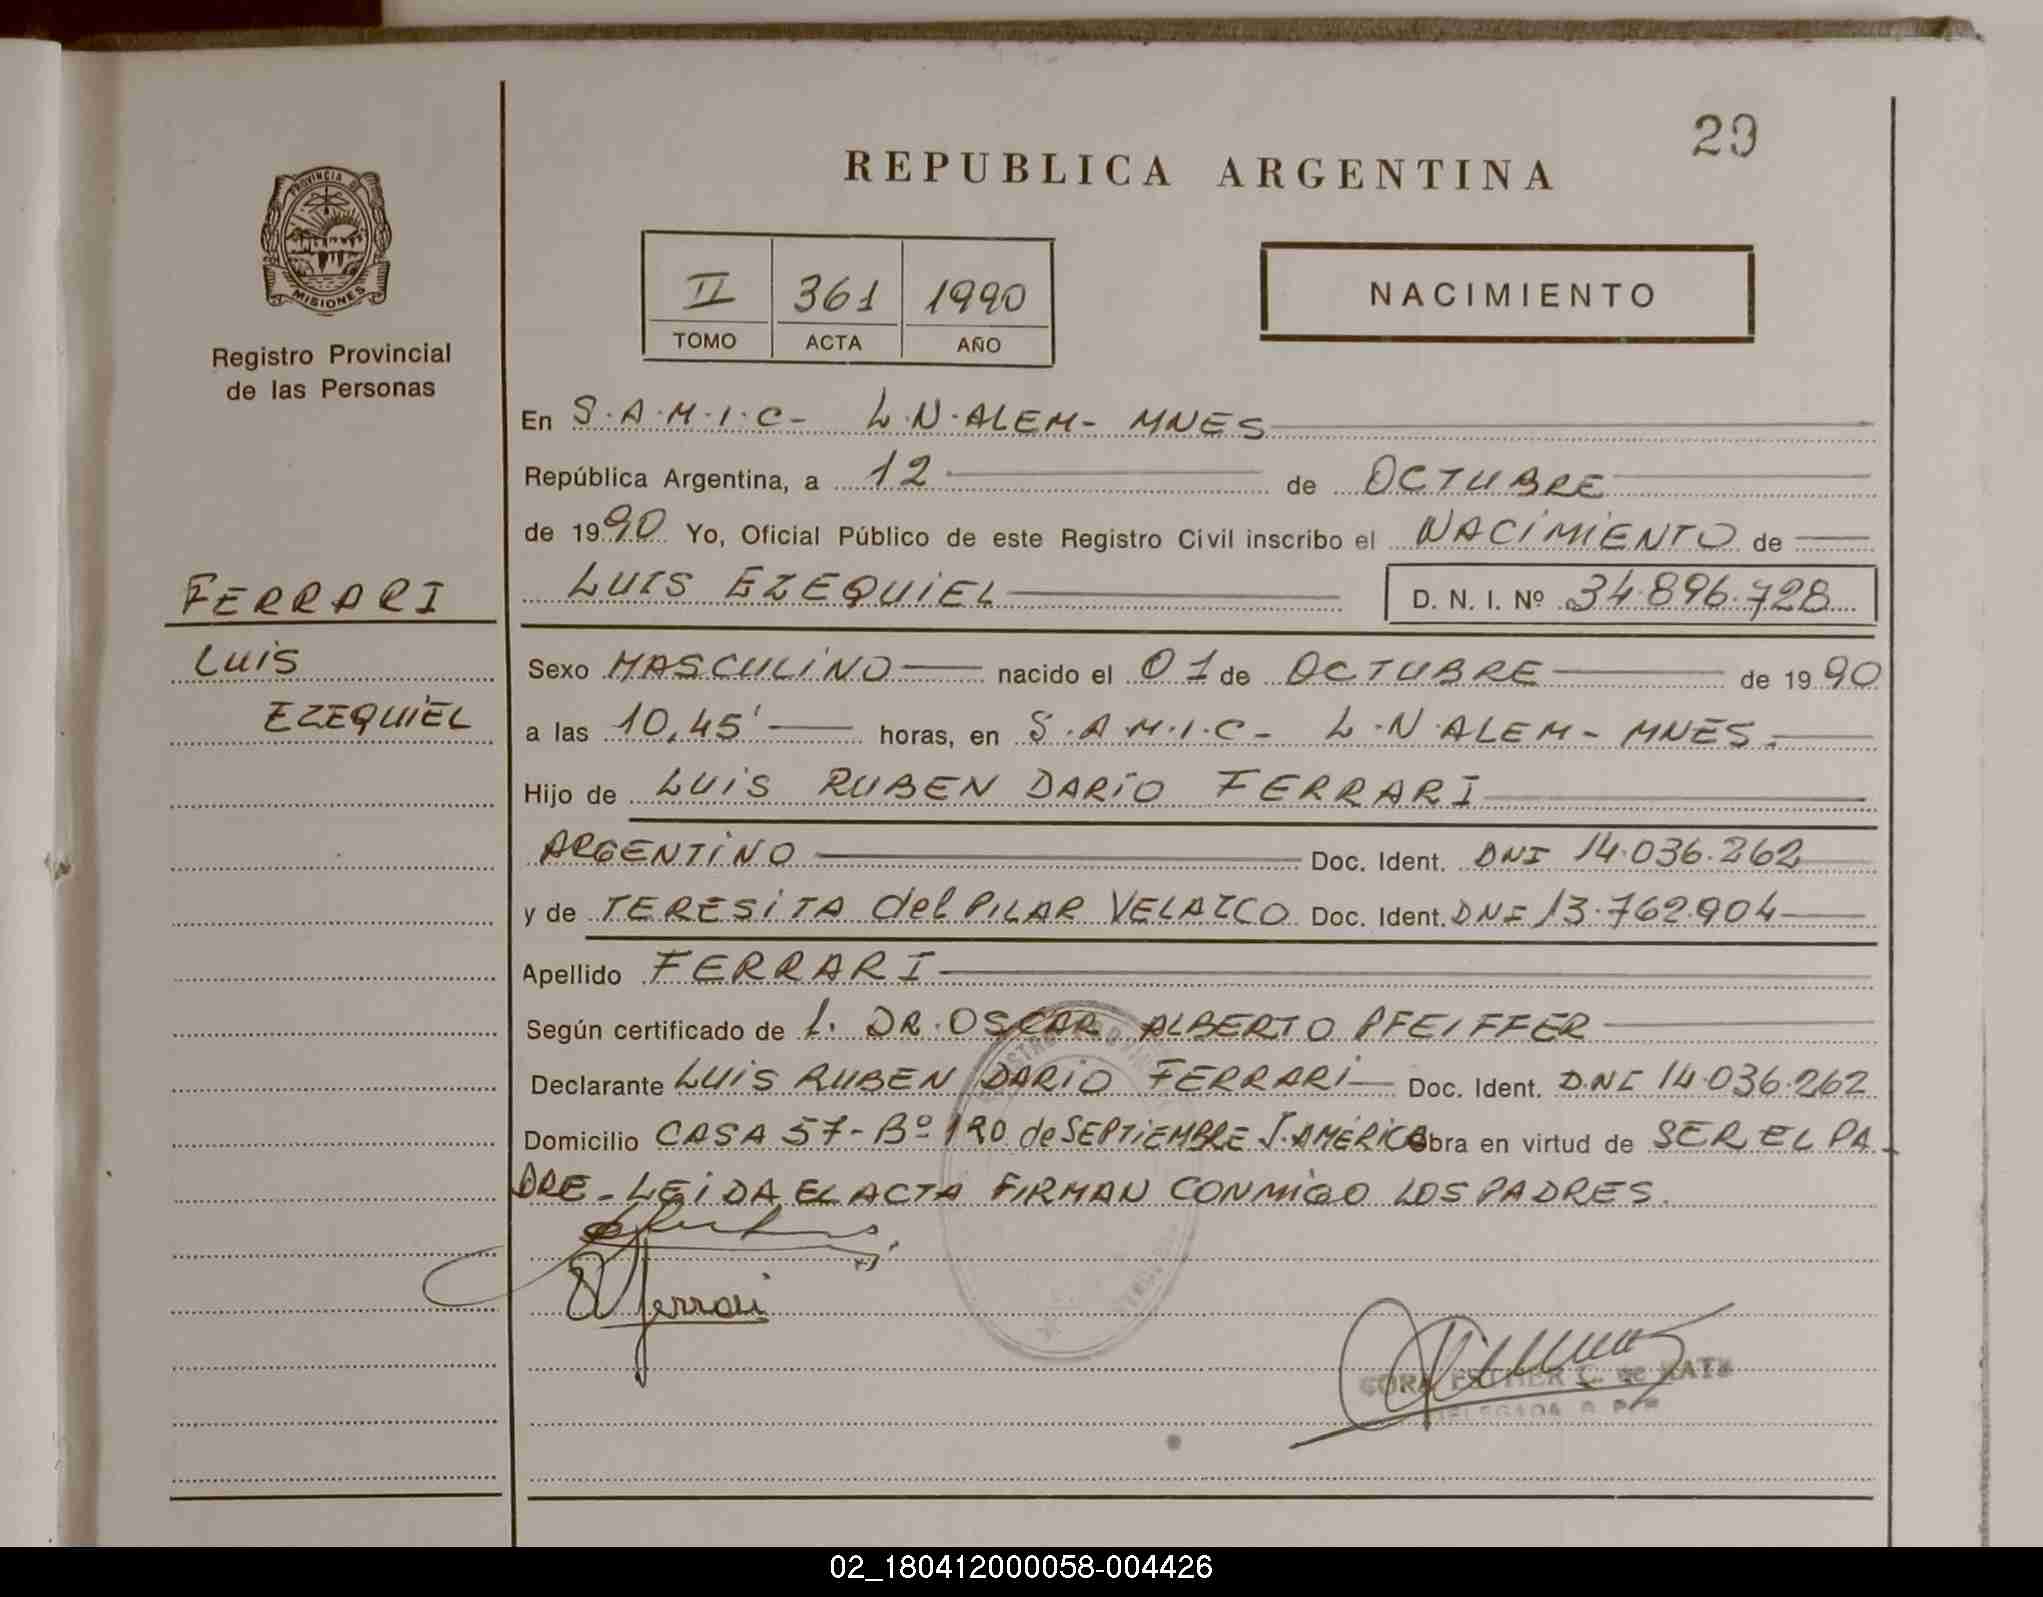 29
REPUBLICA ARGENTINA
PROVINCIA DE
MISIONES
Registro Provincial
de las Personas
II 361 1990
TOMO ACTA AÑO
NACIMIENTO
En S.A.M.I.C- L.N.ALEM- MNES
República Argentina, a 12 de OCTUBRE
de 1990 Yo, Oficial Público de este Registro Civil inscribo el NACIMIENTO de
LUIS EZEQUIEL D. N. I. Nº 34.896.728
FERRARI
LUIS
EZEQUIEL
Sexo MASCULINO nacido el 01 de OCTUBRE de 1990
a las 10,45' horas, en S.A.M.I.C- L.N ALEM- MNES.
Hijo de LUIS RUBEN DARIO FERRARI
ARGENTINO Doc. Ident. DNI 14.036.262
y de TERESITA del PILAR VELAZCO Doc. Ident. DNI 13.762.904
Apellido FERRARI
Según certificado de L. DR. OSCAR ALBERTO PFEIFFER
Declarante LUIS RUBEN DARIO FERRARI Doc. Ident. DNI 14.036.262
Domicilio CASA 57- Bº 120 de SEPTIEMBRE J.AMÉRICA obra en virtud de SER EL PA
DRE - LEIDA EL ACTA FIRMAN CONMIGO LOS PADRES.
Ferrari
ESTHER C. de KATZ
DELEGADA
02_180412000058-004426